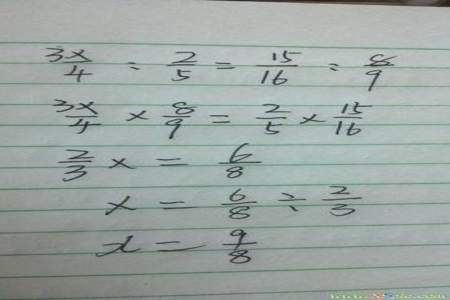 3x/4 : 2/5 = 15/16 : 8/9
3x/4 × 8/9 = 2/5 × 15/16
2/3 x = 6/8
x = 6/8 ÷ 2/3
x = 9/8